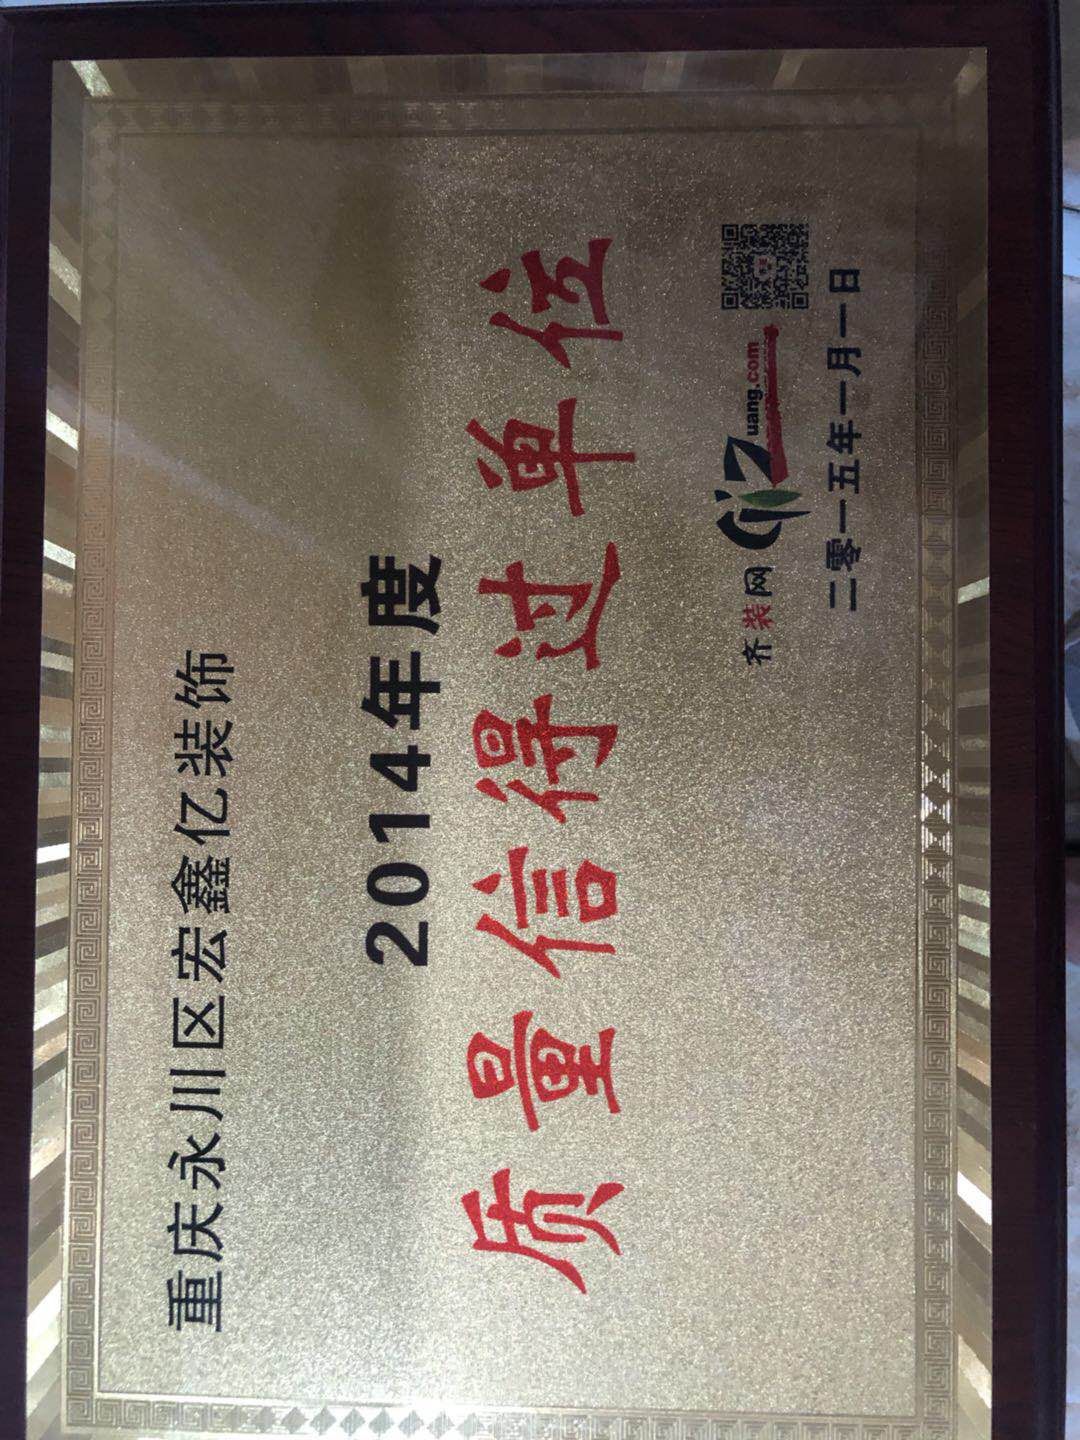 重庆永川区宏鑫亿装饰
2014年度
质量信得过单位
齐装网 QiZuang.com
二零一五年一月一日